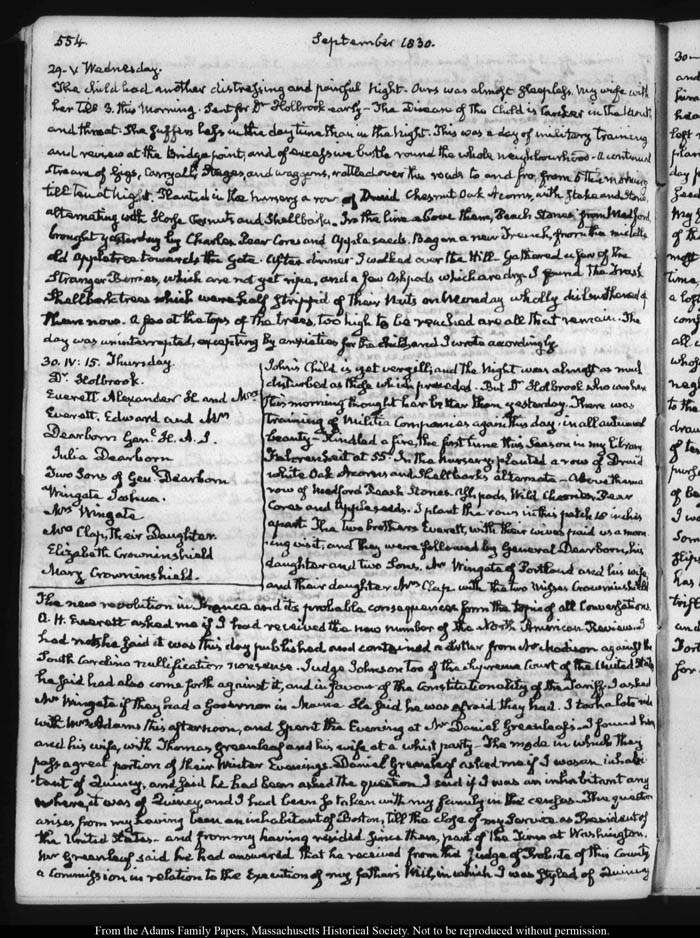 554
September 1830.
29. V. Wednesday.
The child had another distressing and painful Night. Ours was almost sleepless. My wife with
her till 3. this Morning. Sent for Dr. Holbrook early— The Disease of the Child is canker in the Mouth
and throat. She suffers less in the day time than in the Night. This was a day of military training
and review at the Bridge point, and of excessive bustle round the whole neighbourhood. A continual
stream of Gigs, Carryalls, Stages, and waggons, rattled over the roads to and fro, from 5 this morning
till ten at Night. Planted in the nursery a row of Druid Chesnut Oak Acorns, with Stake and Stone,
alternating with Horse Chesnuts and Shellbarks. In the line above them, Peach Stones from Medford,
brought yesterday by Charles. Pear Cores and Apple seeds. Began a new Trench, from the middle
old Appletree towards the Gate. After dinner I walked over the Hill. Gathered a few of the
Stranger Berries, which are not yet ripe, and a few Ashpods which are dry. I found the
Shellbark trees which were half stripped of their Nuts on wholly disburthened of
them now. A few at the tops of the trees, too high to be reached are all that remain. The
day was uninterrupted, excepting by anxieties for the child, and I wrote accordingly.
30. IV: 15. Thursday
Dr. Holbrook.
Everett Alexander H. and Mrs
Everett. Edward and Mrs
Dearborn Genl. H. A. S.
Julia Dearborn
Two Sons of Genl. Dearborn
Wingate Joshua.
Mrs Wingate
Mrs Clap, Their Daughter.
Elizabeth Crowninshield
Mary Crowninshield.
John's Child is yet very ill, and the Night was almost as much
disturbed as those which preceded. But Dr. Holbrook who saw her
this morning thought her better than yesterday. There was
training of Militia Companies again this day, in all autumnal
beauty— Kindled a fire, the first time this Season in my Library
Fahrenheit at 55. In the nursery planted a row of Druid
white Oak Acorns and Shellbarks alternate— Above them a
row of Medford Peach Stones. Ashpods, Wild Cherries, Pear
Cores and Apple seeds. I plant the rows in this patch 18 inches
apart. The two brothers Everett, with their wives paid us a morn-
ing visit, and they were followed by General Dearborn, his
daughter and two Sons, Mr Wingate of Portland and his wife,
and their daughter Mrs Clap with the two Misses Crowninshield
The new revolution in France and its probable consequences form the topic of all Conversations.
A. H. Everett asked me if I had received the new number of the North American Review. I
had not. he said it was this day published and contained a Letter from Mr Madison against the
South Carolina nullification nonsense. Judge Johnson too of the Supreme Court of the United States
he said had also come forth against it, and in favour of the Constitutionality of the Tariff. I asked
Mr Wingate if they had a Governor in Maine. He said he was afraid they had. I took a late ride
with Mrs Adams this afternoon, and spent the Evening at Mr Daniel Greenleaf's. I found him
and his wife, with Thomas Greenleaf and his wife at a whist party. The mode in which they
pass a great portion of their Winter Evenings. Daniel Greenleaf asked me if I was an inhabi-
tant of Quincy, and said he had been asked the question. I said if I was an inhabitant any
where, it was of Quincy, and I had been so taken with my family in the census. The question
arises from my having been an inhabitant of Boston, till the close of my Service as President of
the United States— and from my having resided since then, part of the Time at Washington.
Mr Greenleaf said he had answered that he received from the Judge of Probate of this County
a Commission in relation to the Execution of my father's Will, in which I was styled of Quincy
From the Adams Family Papers, Massachusetts Historical Society. Not to be reproduced without permission.